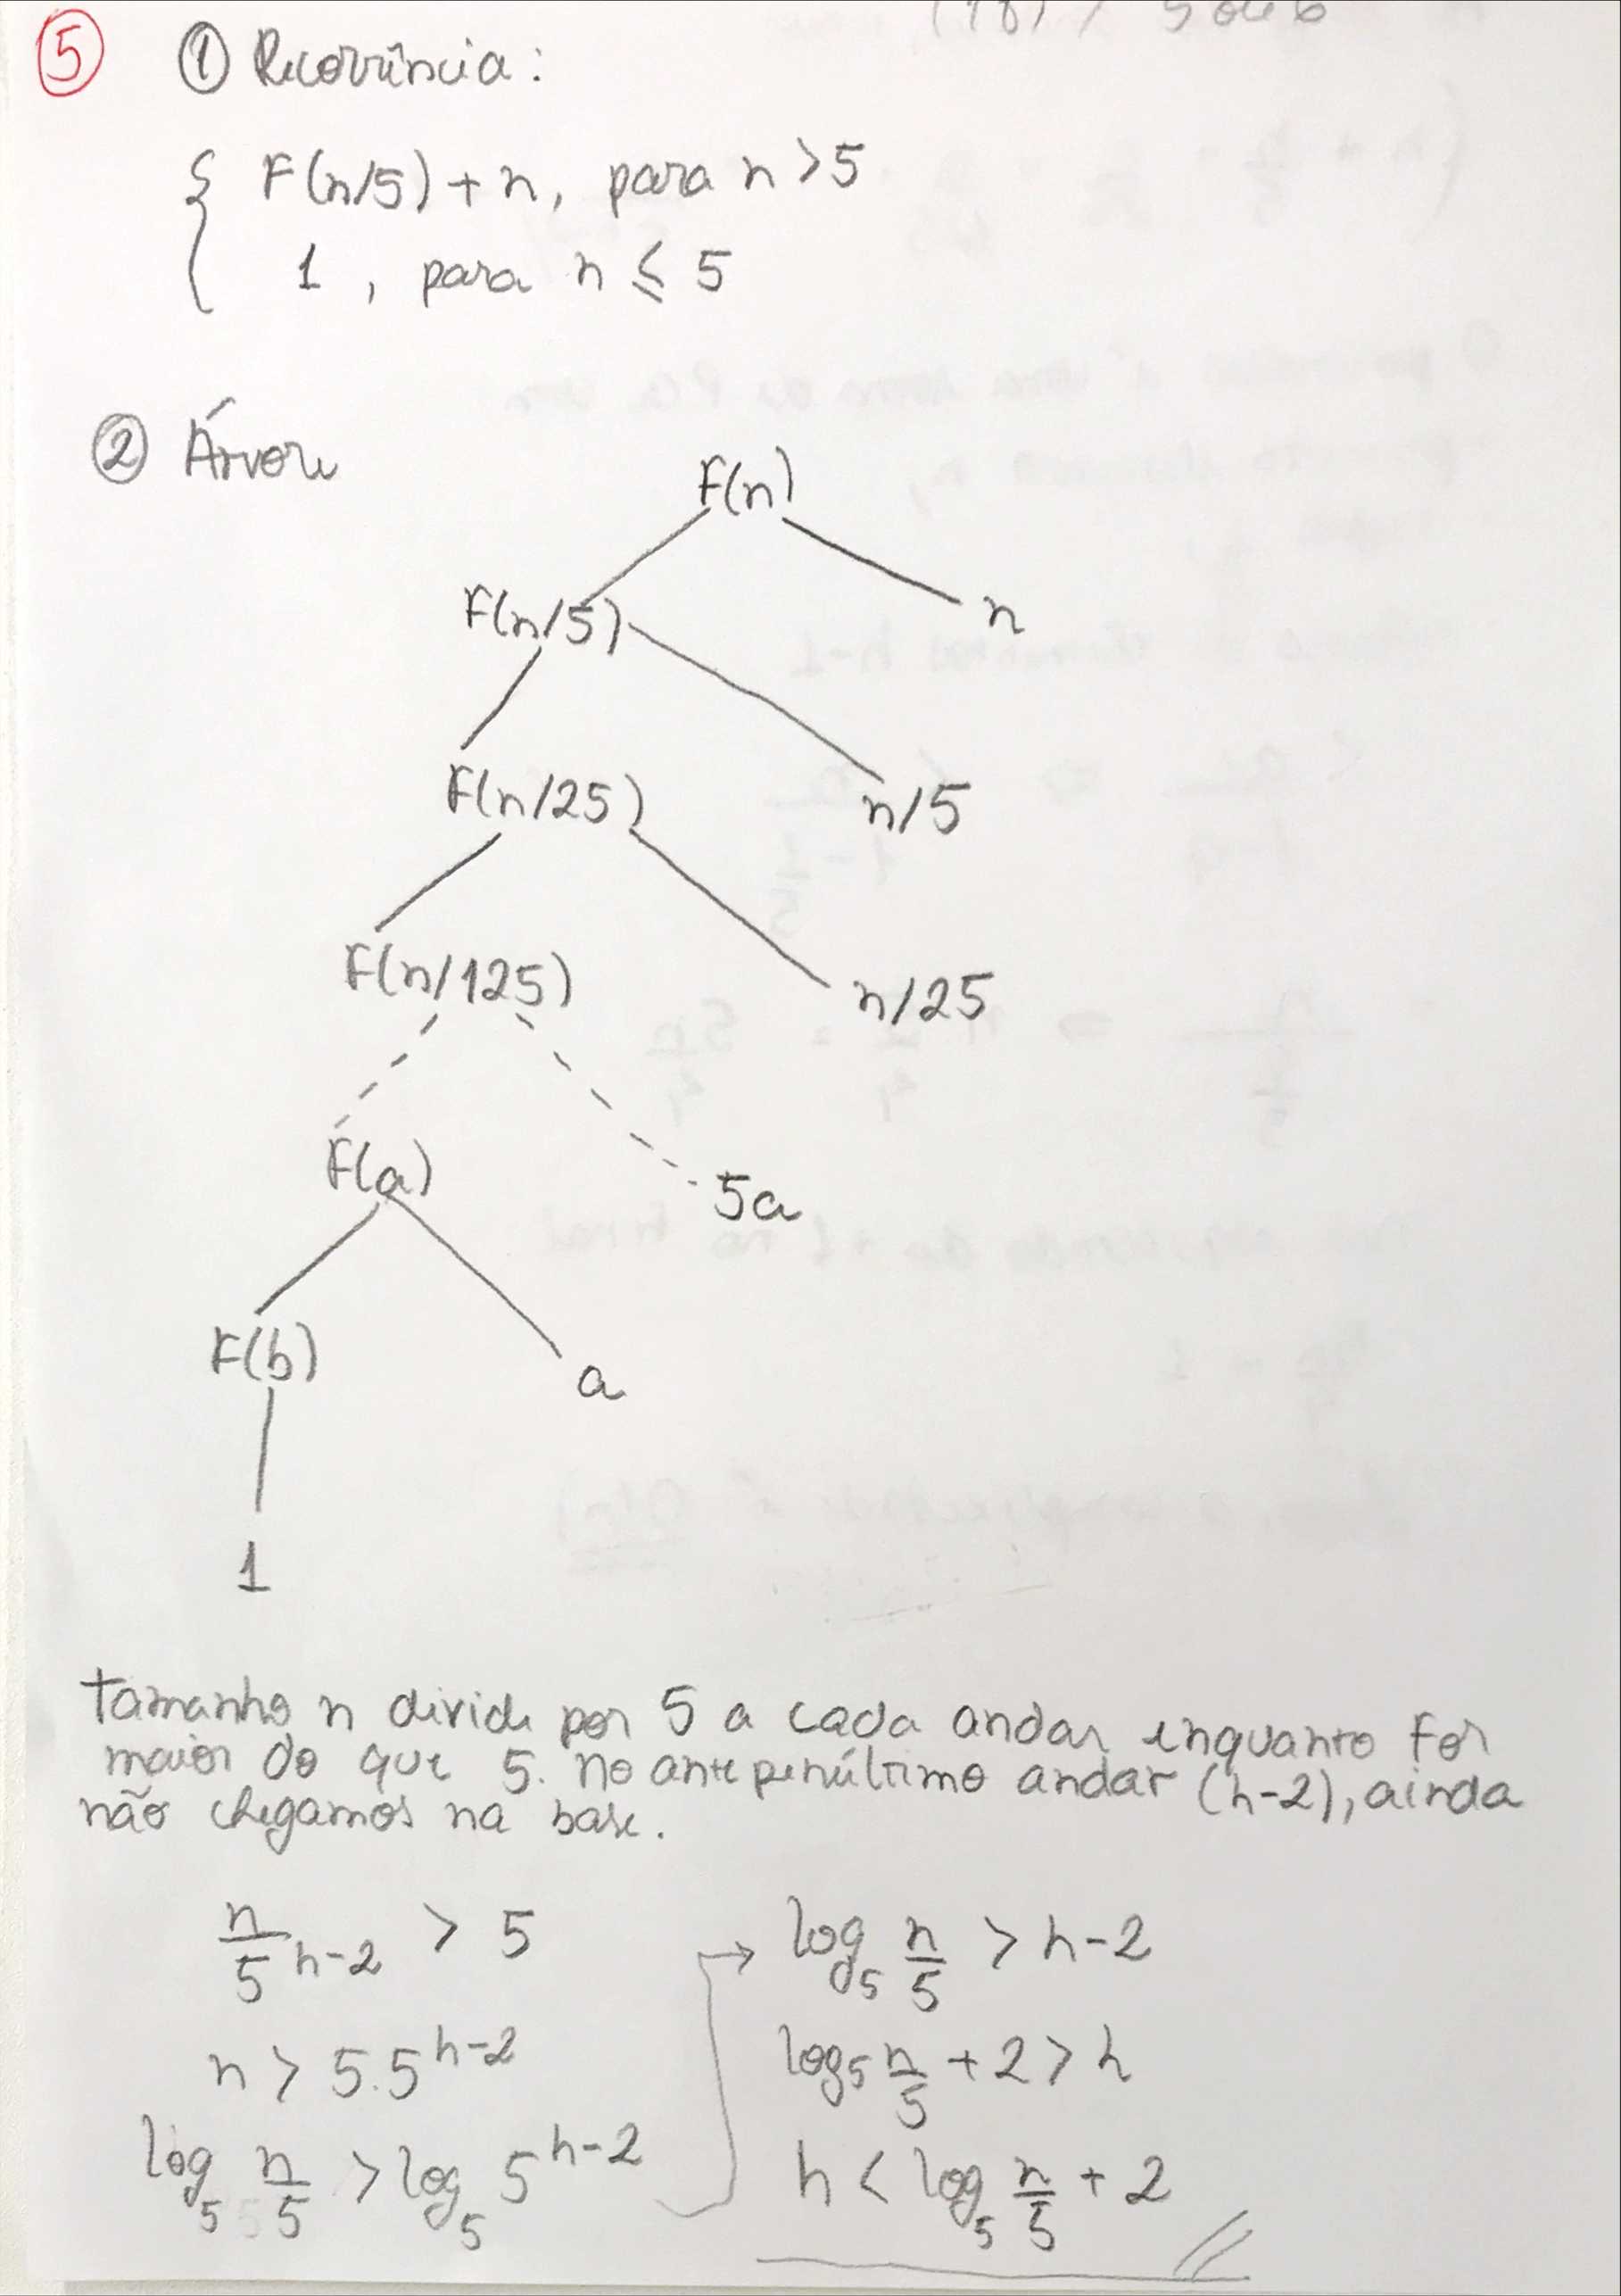 5 ① Recorrência:
{ F(n/5) + n, para n > 5
1, para n ≤ 5
② Árvore
F(n)
F(n/5) n
F(n/25) n/5
F(n/125) n/25
F(a) 5a
F(b) a
1
tamanho n divide por 5 a cada andar enquanto for
maior do que 5. no antepenúltimo andar (h-2), ainda
não chegamos na base.
n/5^(h-2) > 5
n > 5.5^(h-2)
log₅ n/5 > log₅ 5^(h-2)
→ log₅ n/5 > h-2
log₅ n/5 + 2 > h
h < log₅ n/5 + 2 //